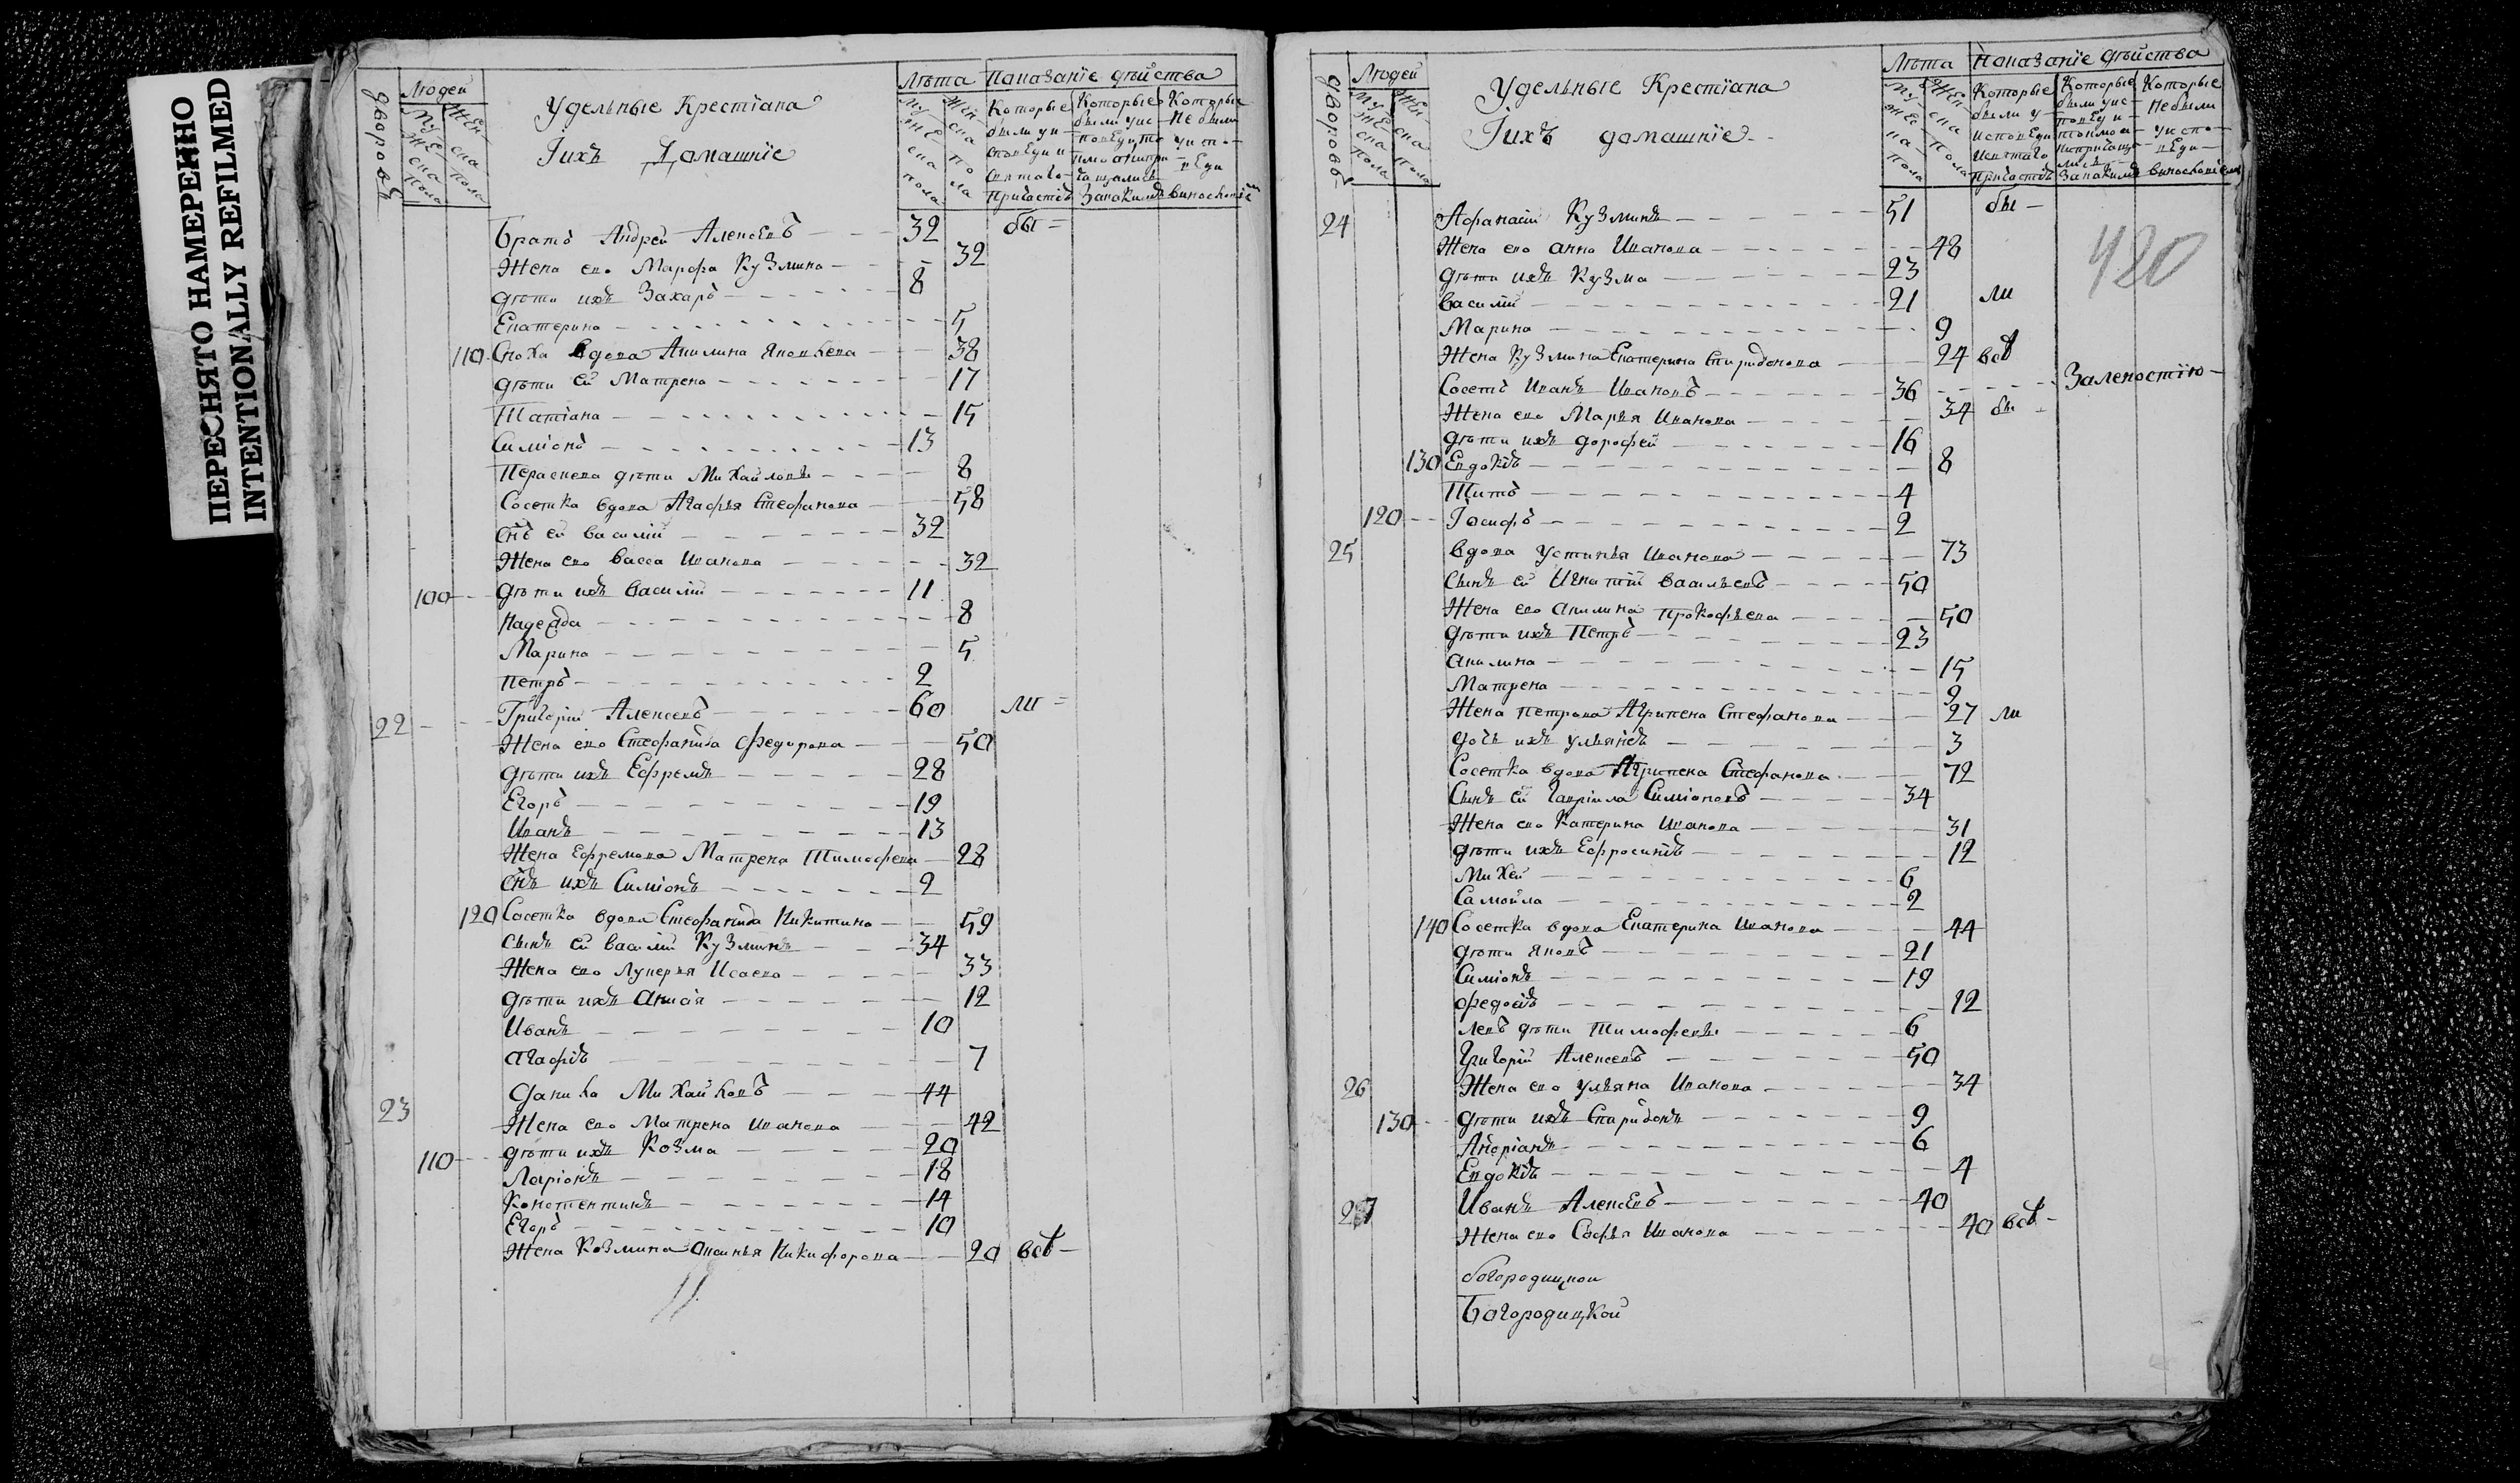 ПЕРЕСНЯТО НАМЕРЕННО
INTENTIONALLY REFILMED
дворовъ
Людей
Муженска пола
Женска пола
Удельные Крестіана
Іихъ Домашніе
Лѣта
Показаніе дѣйства
Которые были уисповеди и святаго причастія
Которые были уисповеди, а непричащались
Которые небыли уисповеди
Братъ Андрей Алексеевъ 32 бы
Жена ево Марфа Кузмина 32
дѣти ихъ Захаръ 8
Екатерина 5
110 Сноха Вдова Акилина Яковлева 38
дѣти ей Матрена 17
Татіана 15
Симіонъ 13
Параскева дѣти Михайловы 8
Сосетка вдова Агафья Стефанова 58
снъ ей василій 32
Жена ево васса Иванова 32
100 дѣти ихъ василій 11
Надежда 8
Марина 5
Петръ 2
22 Григорій Алексеевъ 60 ли
Жена ево Стефанида федорова 50
дѣти ихъ Ефремъ 28
Егоръ 19
Иванъ 13
Жена Ефремова Матрена Тимофева 28
снъ ихъ Симіонъ 2
120 Сосетка вдова Стефанида Никитина 59
сынъ ей василій Кузминъ 34
Жена ево Лукерья Исаева 33
дѣти ихъ Анисія 12
Иванъ 10
Агафія 7
23 Данила Михайловъ 44
Жена ево Матрена Иванова 42
110 дѣти ихъ Козма 20
Ларіонъ 18
Констентинъ 14
Егоръ 10
Жена Козмина Аксинья Никифорова 20 всѣ
дворовъ
Людей
Муженска пола
Женска пола
Удельные Крестіана
Іихъ домашніе
Лѣта
Показаніе дѣйства
Которые были у исповеди и святаго причастія
Которые были уисповеди, а непричащались
Которые небыли уисповеди
24 Афанасій Кузминъ 51 бы
420
Жена ево анна Иванова 48
дѣти ихъ Кузма 23
василій 21 ли
Марина 9
Жена Кузмина Екатерина Спиридонова 24 всѣ
Сосетъ Иванъ Ивановъ 36 Заленостію
Жена ево Марья Иванова 34 бы
дѣти ихъ дорофей 16
130 Евдокія 8
Титъ 4
120 Іосифъ 2
25 вдова Устинья Иванова 73
сынъ ей Игнатій васильевъ 50
Жена ево акилина Прокофьева 50
дѣти ихъ Петръ 23
акилина 15
Матрена 9
Жена петрова Агрипена Стефанова 27 ли
дочь ихъ ульянія 3
Сосетка вдова Агрипена Стефанова 72
Сынъ ей Гавріила Симіоновъ 34
Жена ево Катерина Иванова 31
дѣти ихъ Ефросинія 12
Михей 6
Самойла 2
140 Сосетка вдова Екатерина Иванова 44
дѣти Яковъ 21
Симіонъ 19
федосія 12
Левъ дѣти Тимофеевы 6
Григорій Алексеевъ 50
26 Жена ево ульяна Иванова 34
130 дѣти ихъ Спиридонъ 9
Андріанъ 6
Евдокія 4
27 Иванъ Алексеевъ 40
Жена ево Софья Иванова 40 всѣ
богородицкои
Богородицкой